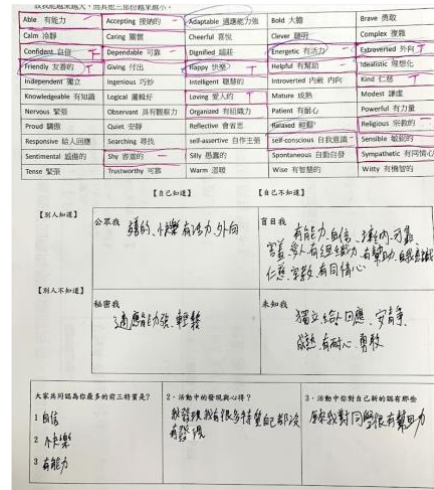 Able 有能力 Accepting 接納的 Adaptable 適應能力強 Bold 大膽 Brave 勇敢
Calm 冷靜 Caring 關懷 Cheerful 喜悅 Clever 聰明 Complex 複雜
Confident 自信 Dependable 可靠 Dignified 端莊 Energetic 有活力 Extroverted 外向
Friendly 友善的 Giving 付出 Happy 快樂 Helpful 有幫助 Idealistic 理想化
Independent 獨立 Ingenious 巧妙 Intelligent 聰慧的 Introverted 內斂 內向 Kind 仁慈
Knowledgeable 有知識 Logical 邏輯好 Loving 愛人的 Mature 成熟 Modest 謙虛
Nervous 緊張 Observant 具有觀察力 Organized 有組織力 Patient 有耐心 Powerful 有力量
Proud 驕傲 Quiet 安靜 Reflective 會省思 Relaxed 輕鬆 Religious 宗教的
Responsive 給人回應 Searching 尋找 self-assertive 自作主張 self-conscious 自我意識 Sensible 敏銳的
Sentimental 感傷的 Shy 害羞的 Silly 愚蠢的 Spontaneous 自動自發 Sympathetic 有同情心
Tense 緊張 Trustworthy 可靠 Warm 溫暖 Wise 有智慧的 Witty 有機智的
【自己知道】 【自己不知道】
【別人知道】
公眾我
快樂 有活力、外向
盲目我
有能力、自信、可靠
害羞、愛人、有組織力、有幫助、自我意識
仁慈、宗教、有同情心
【別人不知道】
秘密我
適應能力強、輕鬆
未知我
獨立、給人回應、安靜
有耐心、勇敢
大家共同認為你最多的前三特質是?
1 自信
2 快樂
3 有能力
2、活動中的發現與心得?
我發現我有很多特質自己都沒
有發現
3、活動中你對自己新的認有那些
原來我對同學很有幫助力